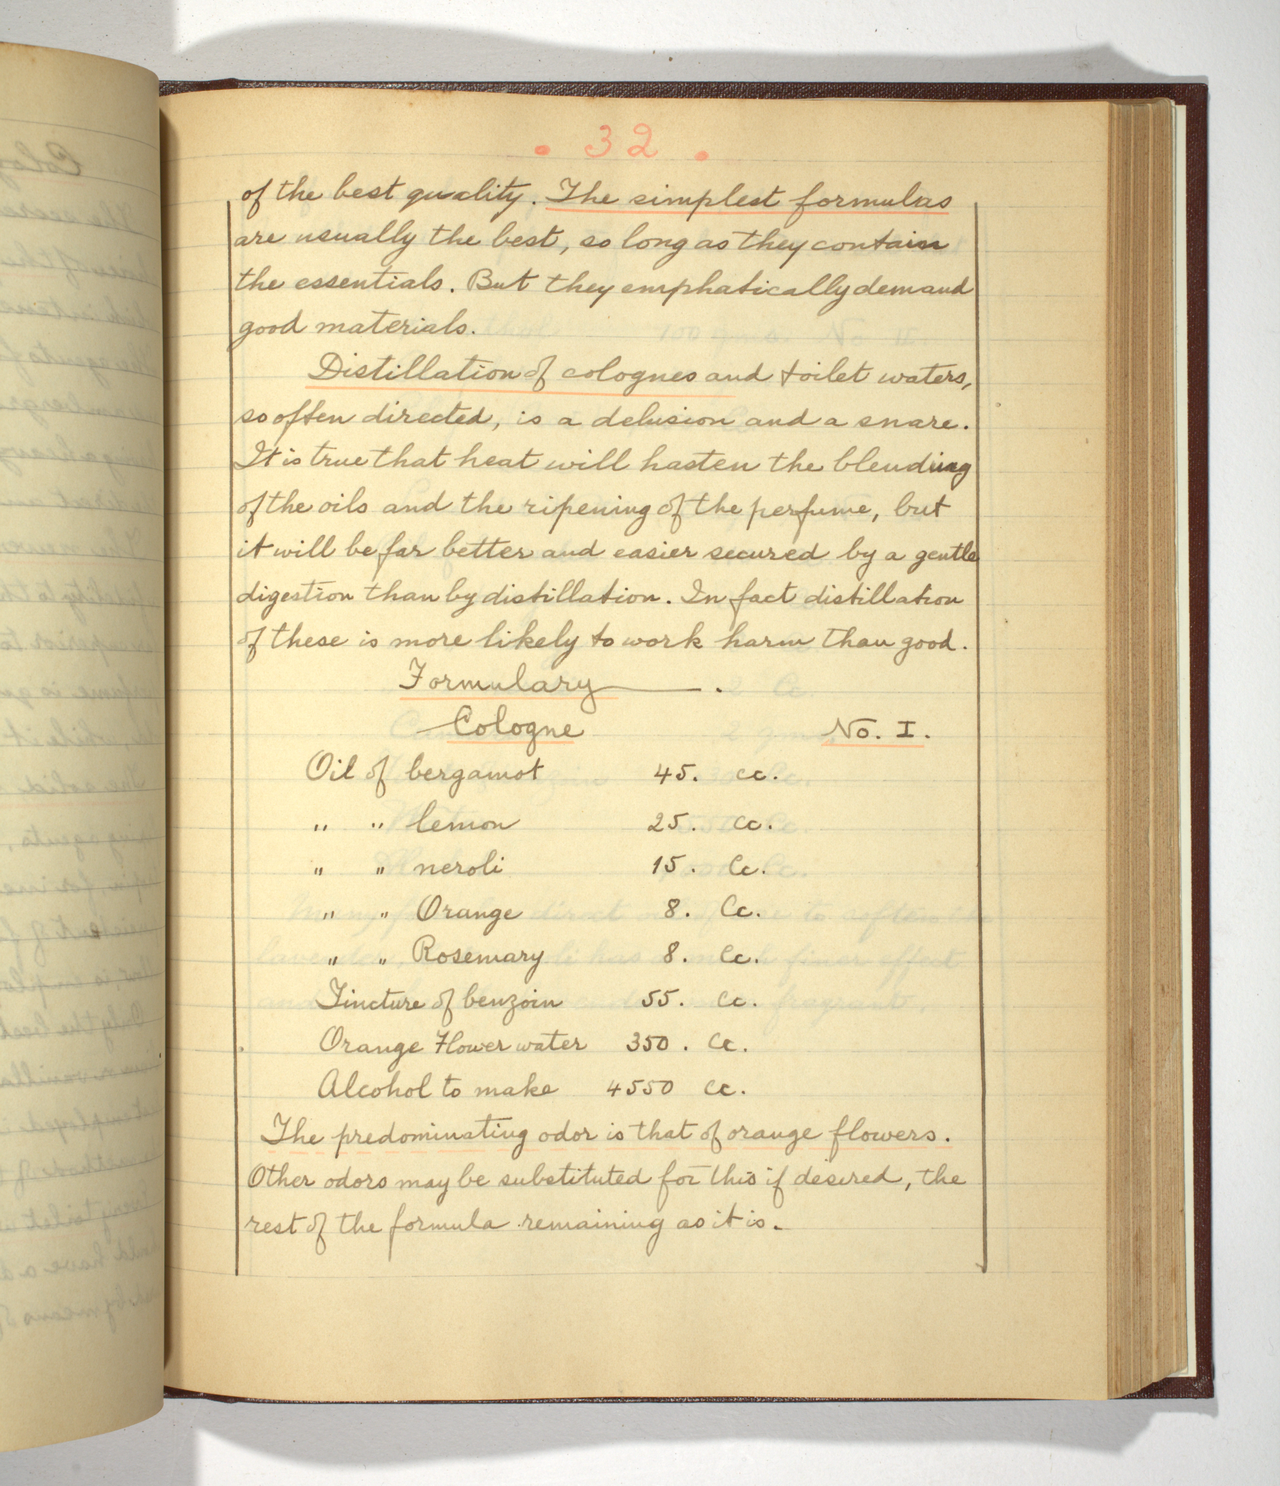 . 32 .
of the best quality. The simplest formulas
are usually the best, so long as they contain
the essentials. But they emphatically demand
good materials.
Distillation of colognes and toilet waters,
so often directed, is a delusion and a snare.
It is true that heat will hasten the blending
of the oils and the ripening of the perfume, but
it will be far better and easier secured by a gentle
digestion than by distillation. In fact distillation
of these is more likely to work harm than good.
Formulary .
Cologne No. I.
Oil of bergamot 45. cc.
" " lemon 25. cc.
" " neroli 15. Cc.
" " Orange 8. Cc.
" " Rosemary 8. Cc.
Tincture of benzoin 55. Cc.
Orange Flower water 350. Cc.
Alcohol to make 4550 cc.
The predominating odor is that of orange flowers.
Other odors may be substituted for this if desired, the
rest of the formula remaining as it is.